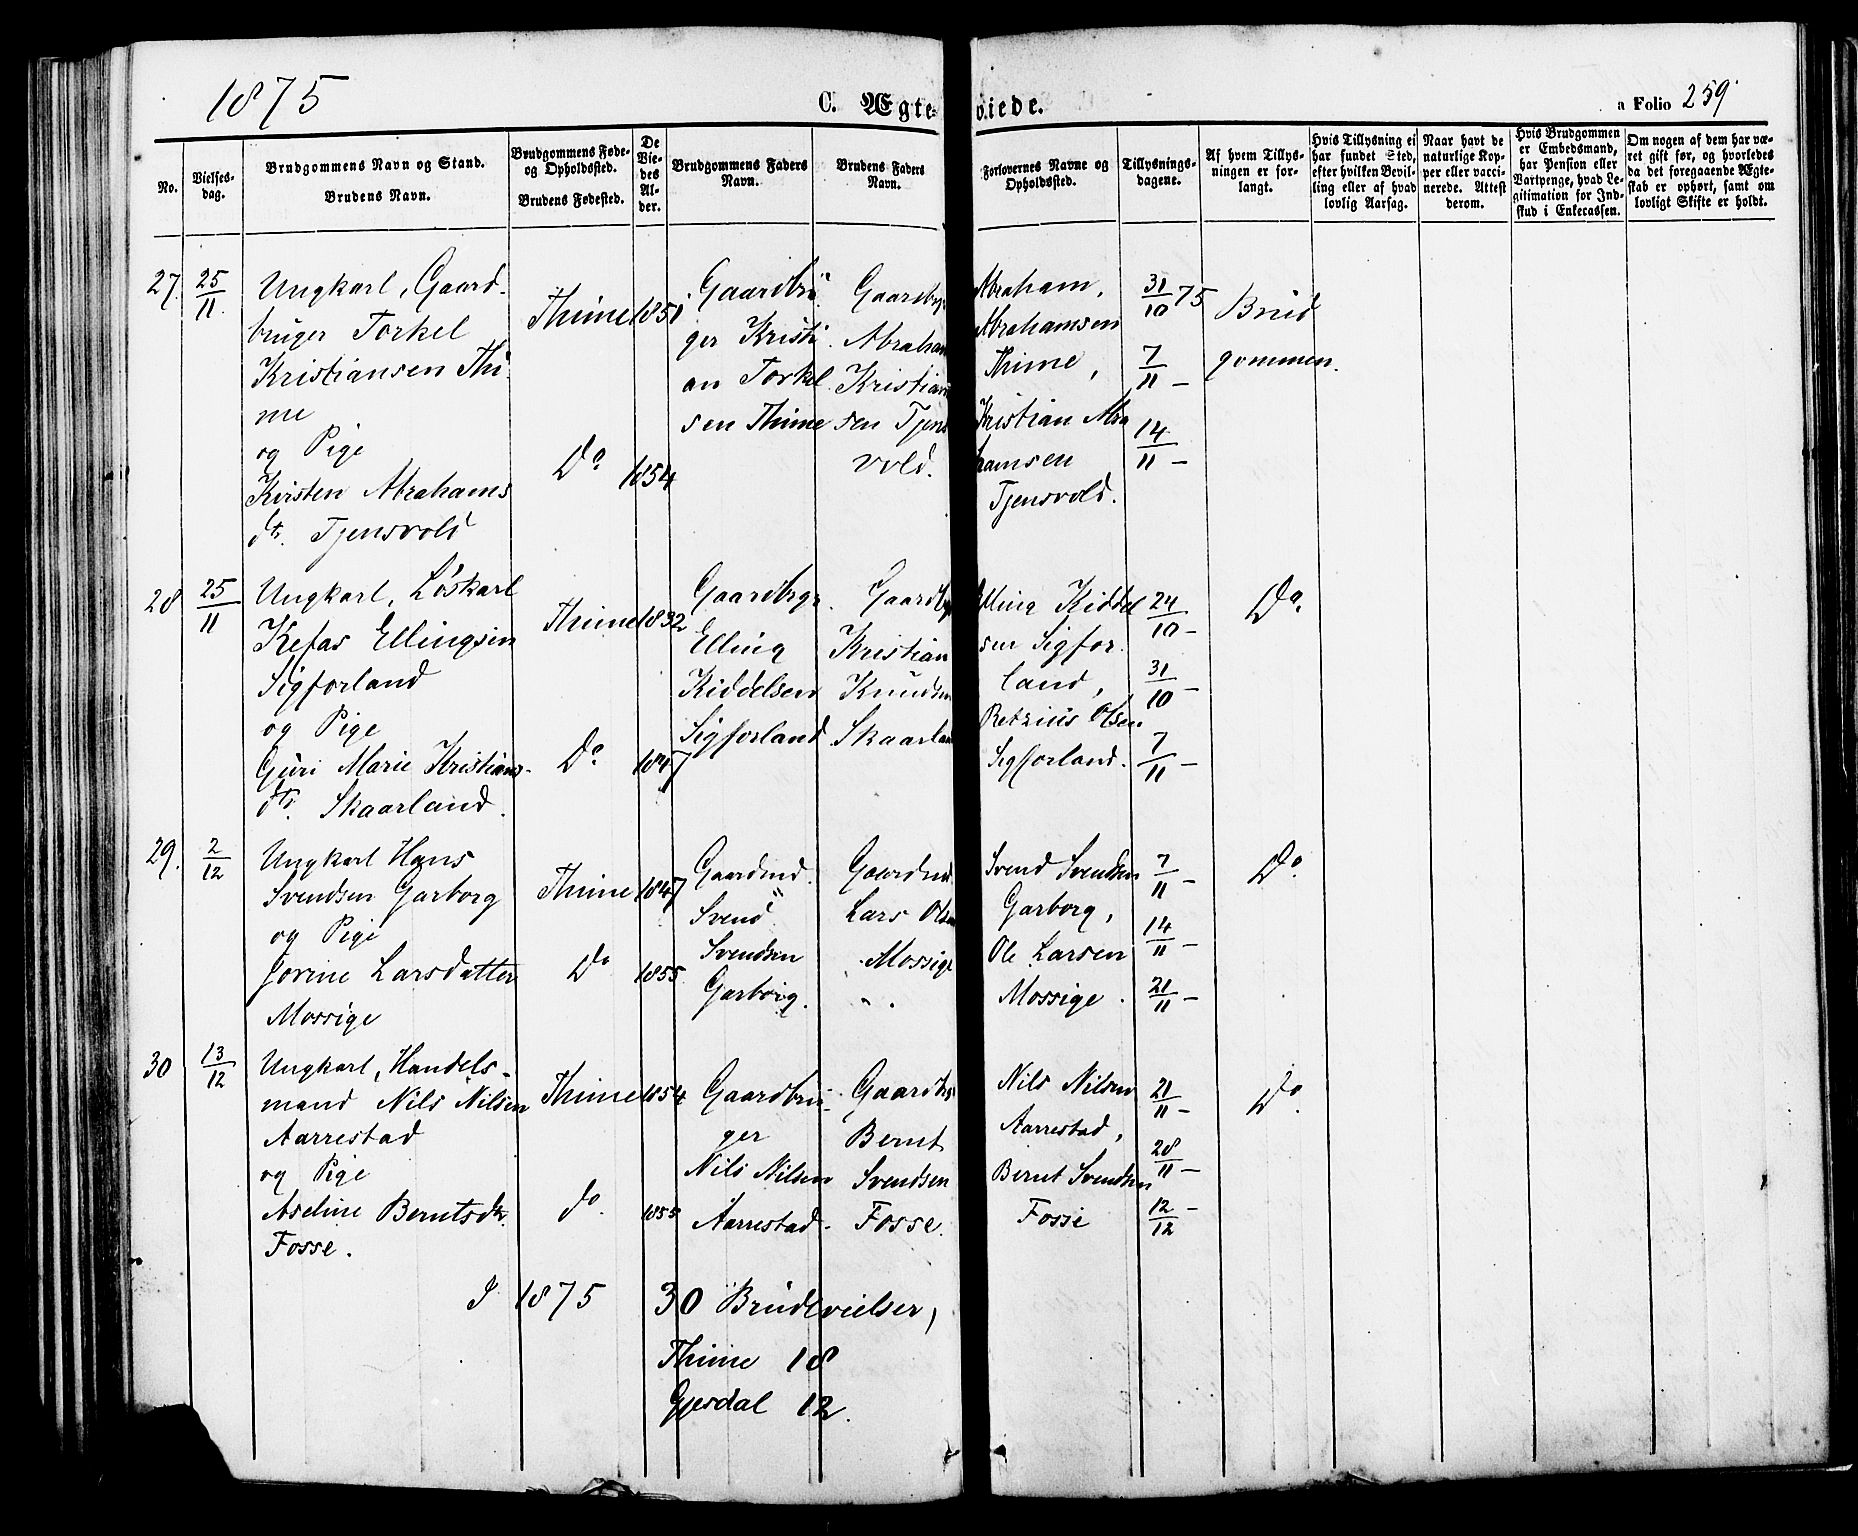 1875
C. Ægteviede.
a Folio 259
No.
Vielses-
dag.
Brudgommens Navn og Stand.
Brudens Navn.
Brudgommens Føde-
og Opholdssted.
Brudens Fødested.
De
Vie-
des
Al-
der.
Brudgommens Faders
Navn.
Brudens Faders
Navn.
Forlovernes Navne og
Opholdssted.
Tillysnings-
dagene.
Af hvem Tillys-
ningen er for-
langt.
Hvis Tillysning ei
har fundet Sted,
efter hvilken Bevil-
ling eller af hvad
lovlig Aarsag.
Naar havt de
naturlige Kop-
per eller vacci-
nerede. Attest
derom.
Hvis Brudgommen
er Embedsmand,
har Pension eller
Vartpenge, hvad Le-
gitimation for Ind-
skud i Enkecassen.
Om nogen af dem har væ-
ret gift før, og hvorledes
da det foregaaende Ægte-
skab er ophørt, samt om
lovligt Skifte er holdt.
27.
25/11.
Ungkarl, Gaard-
bruger Torkel
Kristiansen Thi-
me
og Pige
Kirsten Abrahams
dtr. Tjensvold
Thime
Do
1851
1854
Gaardbru
ger Kristi
an Torkel
sen Thime
Gaardbgr
Abraham
Kristian
sen Tjens
vold.
Abraham,
Abrahamsen
Thime,
Kristian Abra
hamsen
Tjensvold.
31/10 75
7/11 -
14/11 -
Brud
gommen.
28
25/11
Ungkarl, Løskarl
Kefas Ellingsen
Sigforland
og Pige
Guri Marie Kristians-
dtr. Skaarland.
Thime
Do
1832
1847
Gaardbrgr.
Elling
Kiddelsen
Sigforland
Gaardbg
Kristian
Knudsen
Skaarland
Elling Kiddel
sen Sigfor-
land,
Retzius Olsen
Sigforland.
24/10 -
31/10 -
7/11 -
Do.
29.
2/12
Ungkarl Hans
Svendsen Garborg
og Pige
Jorine Larsdatter
Mossige
Thime
Do
1847
1855
Gaardmd.
Svend
Svendsen
Garborg.
Gaardmd.
Lars Olsen
Mossige
Svend Svendsen
Garborg,
Ole Larsen
Mossige.
7/11 -
14/11 -
21/11 -
Do.
30
13/12
Ungkarl, Handels-
mand Nils Nilsen
Aarrestad
og Pige
Aseline Berntsdtr.
Fosse.
Thime
do
1854
1855
Gaardbru-
ger
Nils Nilsen
Aarrestad.
Gaardbr
Bernt
Svendsen
Fosse.
Nils Nilsen
Aarrestad,
Bernt Svendsen
Fosse
21/11 -
28/11 -
12/12 -
Do.
I 1875 30 Brudevielser,
Thime 18
Gjesdal 12.